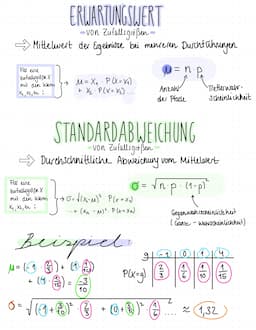 ERWARTUNGSWERT
- von Zufallsgrößen -
→ Mittelwert der Ergebnisse bei mehreren Durchführungen
Für eine
zufallsgröße X
mit den Werten
x₁, x₂, x₃ :
→ μ = x₁ · P(X = x₁)
+ x₂ · P(X = x₂) ...
μ = n · p
Anzahl
der Pfade
Trefferwahr-
scheinlichkeit
STANDARDABWEICHUNG
- von Zufallsgrößen -
→ Durchschnittliche Abweichung vom Mittelwert
Für eine
zufallsgröße X
mit den Werten
x₁, x₂, x₃ :
→ σ = √(x₁-μ)² · P(X = x₁)
+ (x₂-μ)² · P(X = x₂)
σ = √n · p · (1-p)²
Gegenwahrscheinlichkeit
(Ganze - Wahrscheinlichkeit)
Beispiel:
g -1 0 1 4
P(X=g)
≈ 1,32